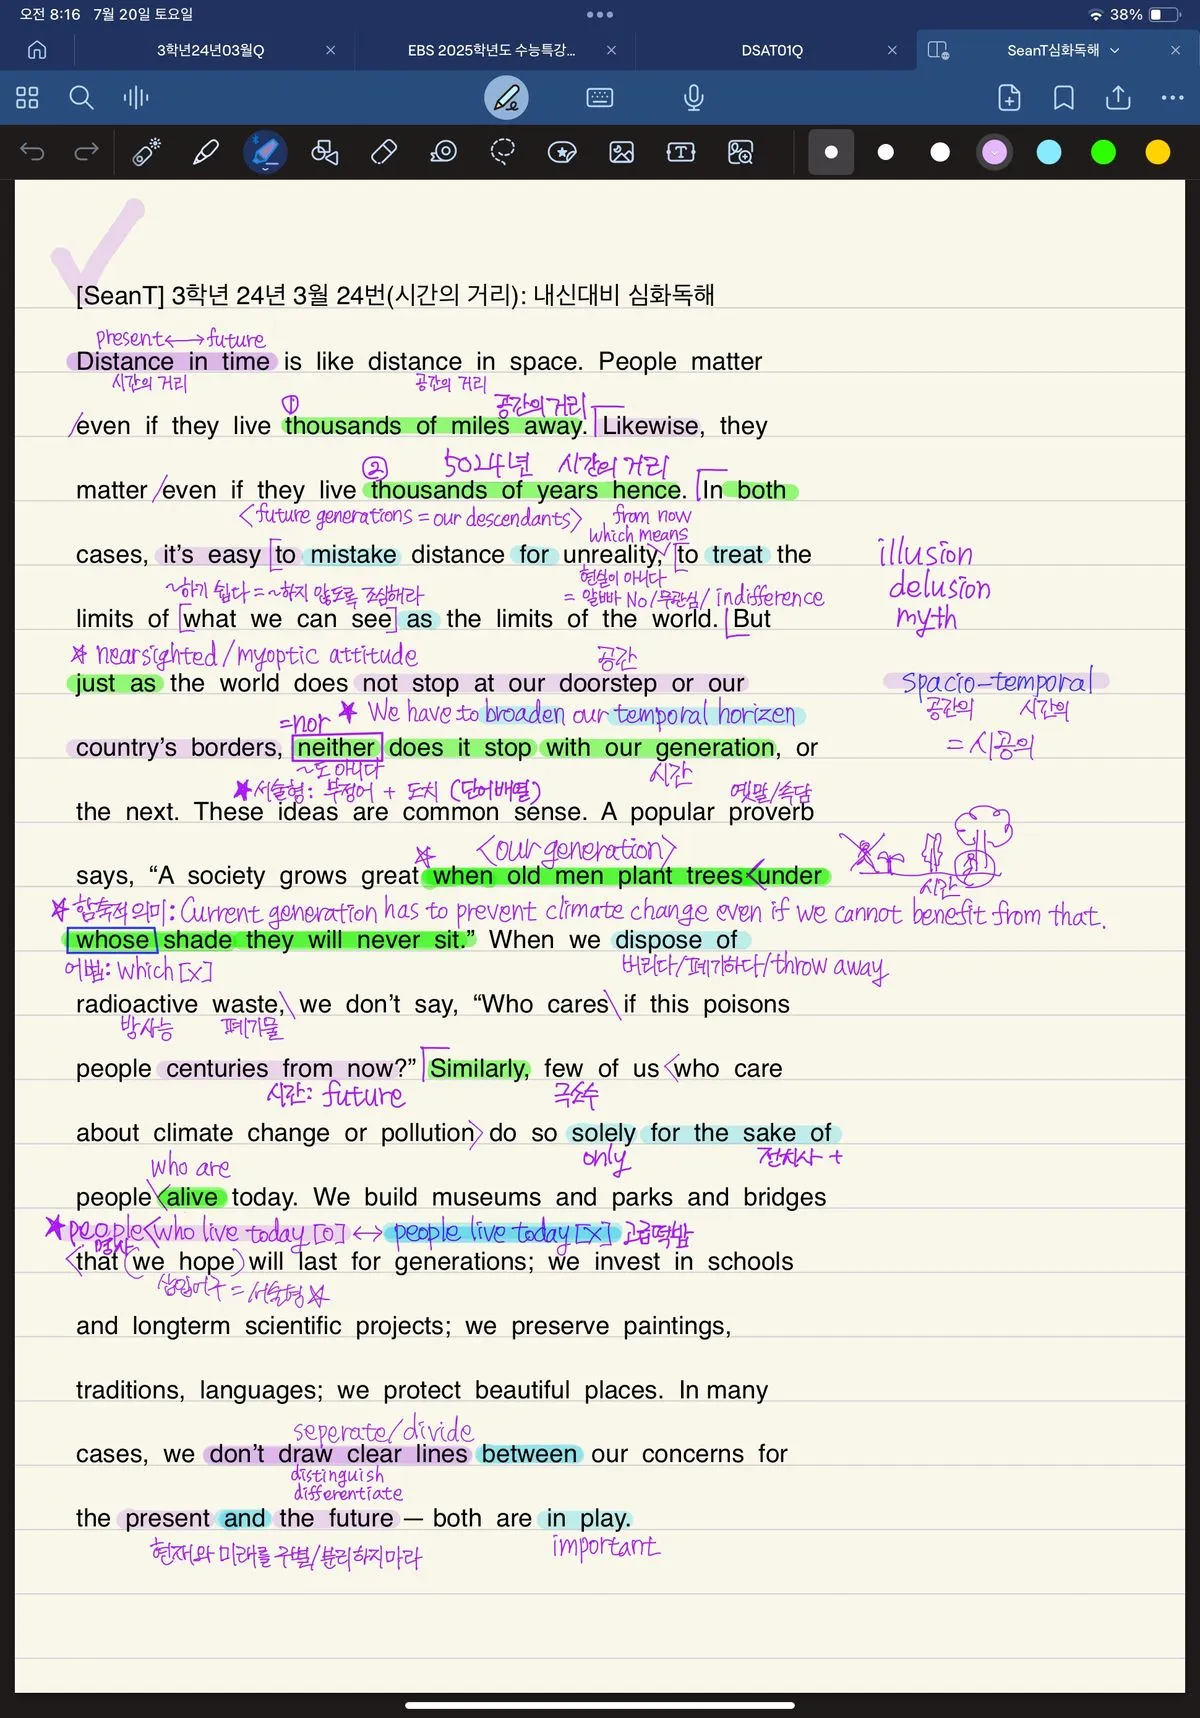 오전 8:16 7월 20일 토요일
38%
3학년24년03월Q
EBS 2025학년도 수능특강...
DSAT01Q
SeanT심화독해
[SeanT] 3학년 24년 3월 24번(시간의 거리): 내신대비 심화독해
present ↔ future
Distance in time is like distance in space. People matter
시간의 거리 공간의 거리
① 공간의 거리
even if they live thousands of miles away. Likewise, they
② 5024년 시간의 거리
matter even if they live thousands of years hence. In both
<future generations = our descendants> from now
which means
cases, it's easy [to mistake distance for unreality, [to treat the
illusion
현실이 아니다
~하기 쉽다 = ~하지 않도록 조심해라 = 알빠 No/무관심/indifference
delusion
limits of [what we can see] as the limits of the world. But
myth
☆ nearsighted/myoptic attitude 공간
just as the world does not stop at our doorstep or our
spacio-temporal
공간의 시간의
=nor ★ We have to broaden our temporal horizen
country's borders, neither does it stop with our generation, or
= 시공의
~도 아니다 시간
★서술형: 부정어 + 도치 (단어배열) 옛말/속담
the next. These ideas are common sense. A popular proverb
☆ <our generation>
says, “A society grows great when old men plant trees <under
시간
☆ 함축적의미: Current generation has to prevent climate change even if we cannot benefit from that.
whose shade they will never sit.” When we dispose of
어법: which [x] 버리다/폐기하다/throw away
radioactive waste, we don't say, “Who cares if this poisons
방사능 폐기물
people centuries from now?” Similarly, few of us <who care
시간: future 극소수
about climate change or pollution> do so solely for the sake of
who are only 전치사 +
people <alive today. We build museums and parks and bridges
★people<who live today [o] ↔ people live today [x] 고급떡밥
명사
<that (we hope) will last for generations; we invest in schools
삽입어구 = 서술형 ☆
and longterm scientific projects; we preserve paintings,
traditions, languages; we protect beautiful places. In many
seperate/divide
cases, we don't draw clear lines between our concerns for
distinguish
differentiate
the present and the future — both are in play.
현재와 미래를 구별/분리하지마라 important